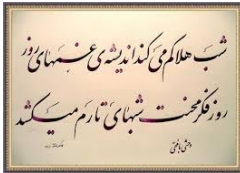 شب هلاکم می کند اندیشه ی غمهای روز
روز فکر محنت شبهای تارم میکشد
وحشی بافقی